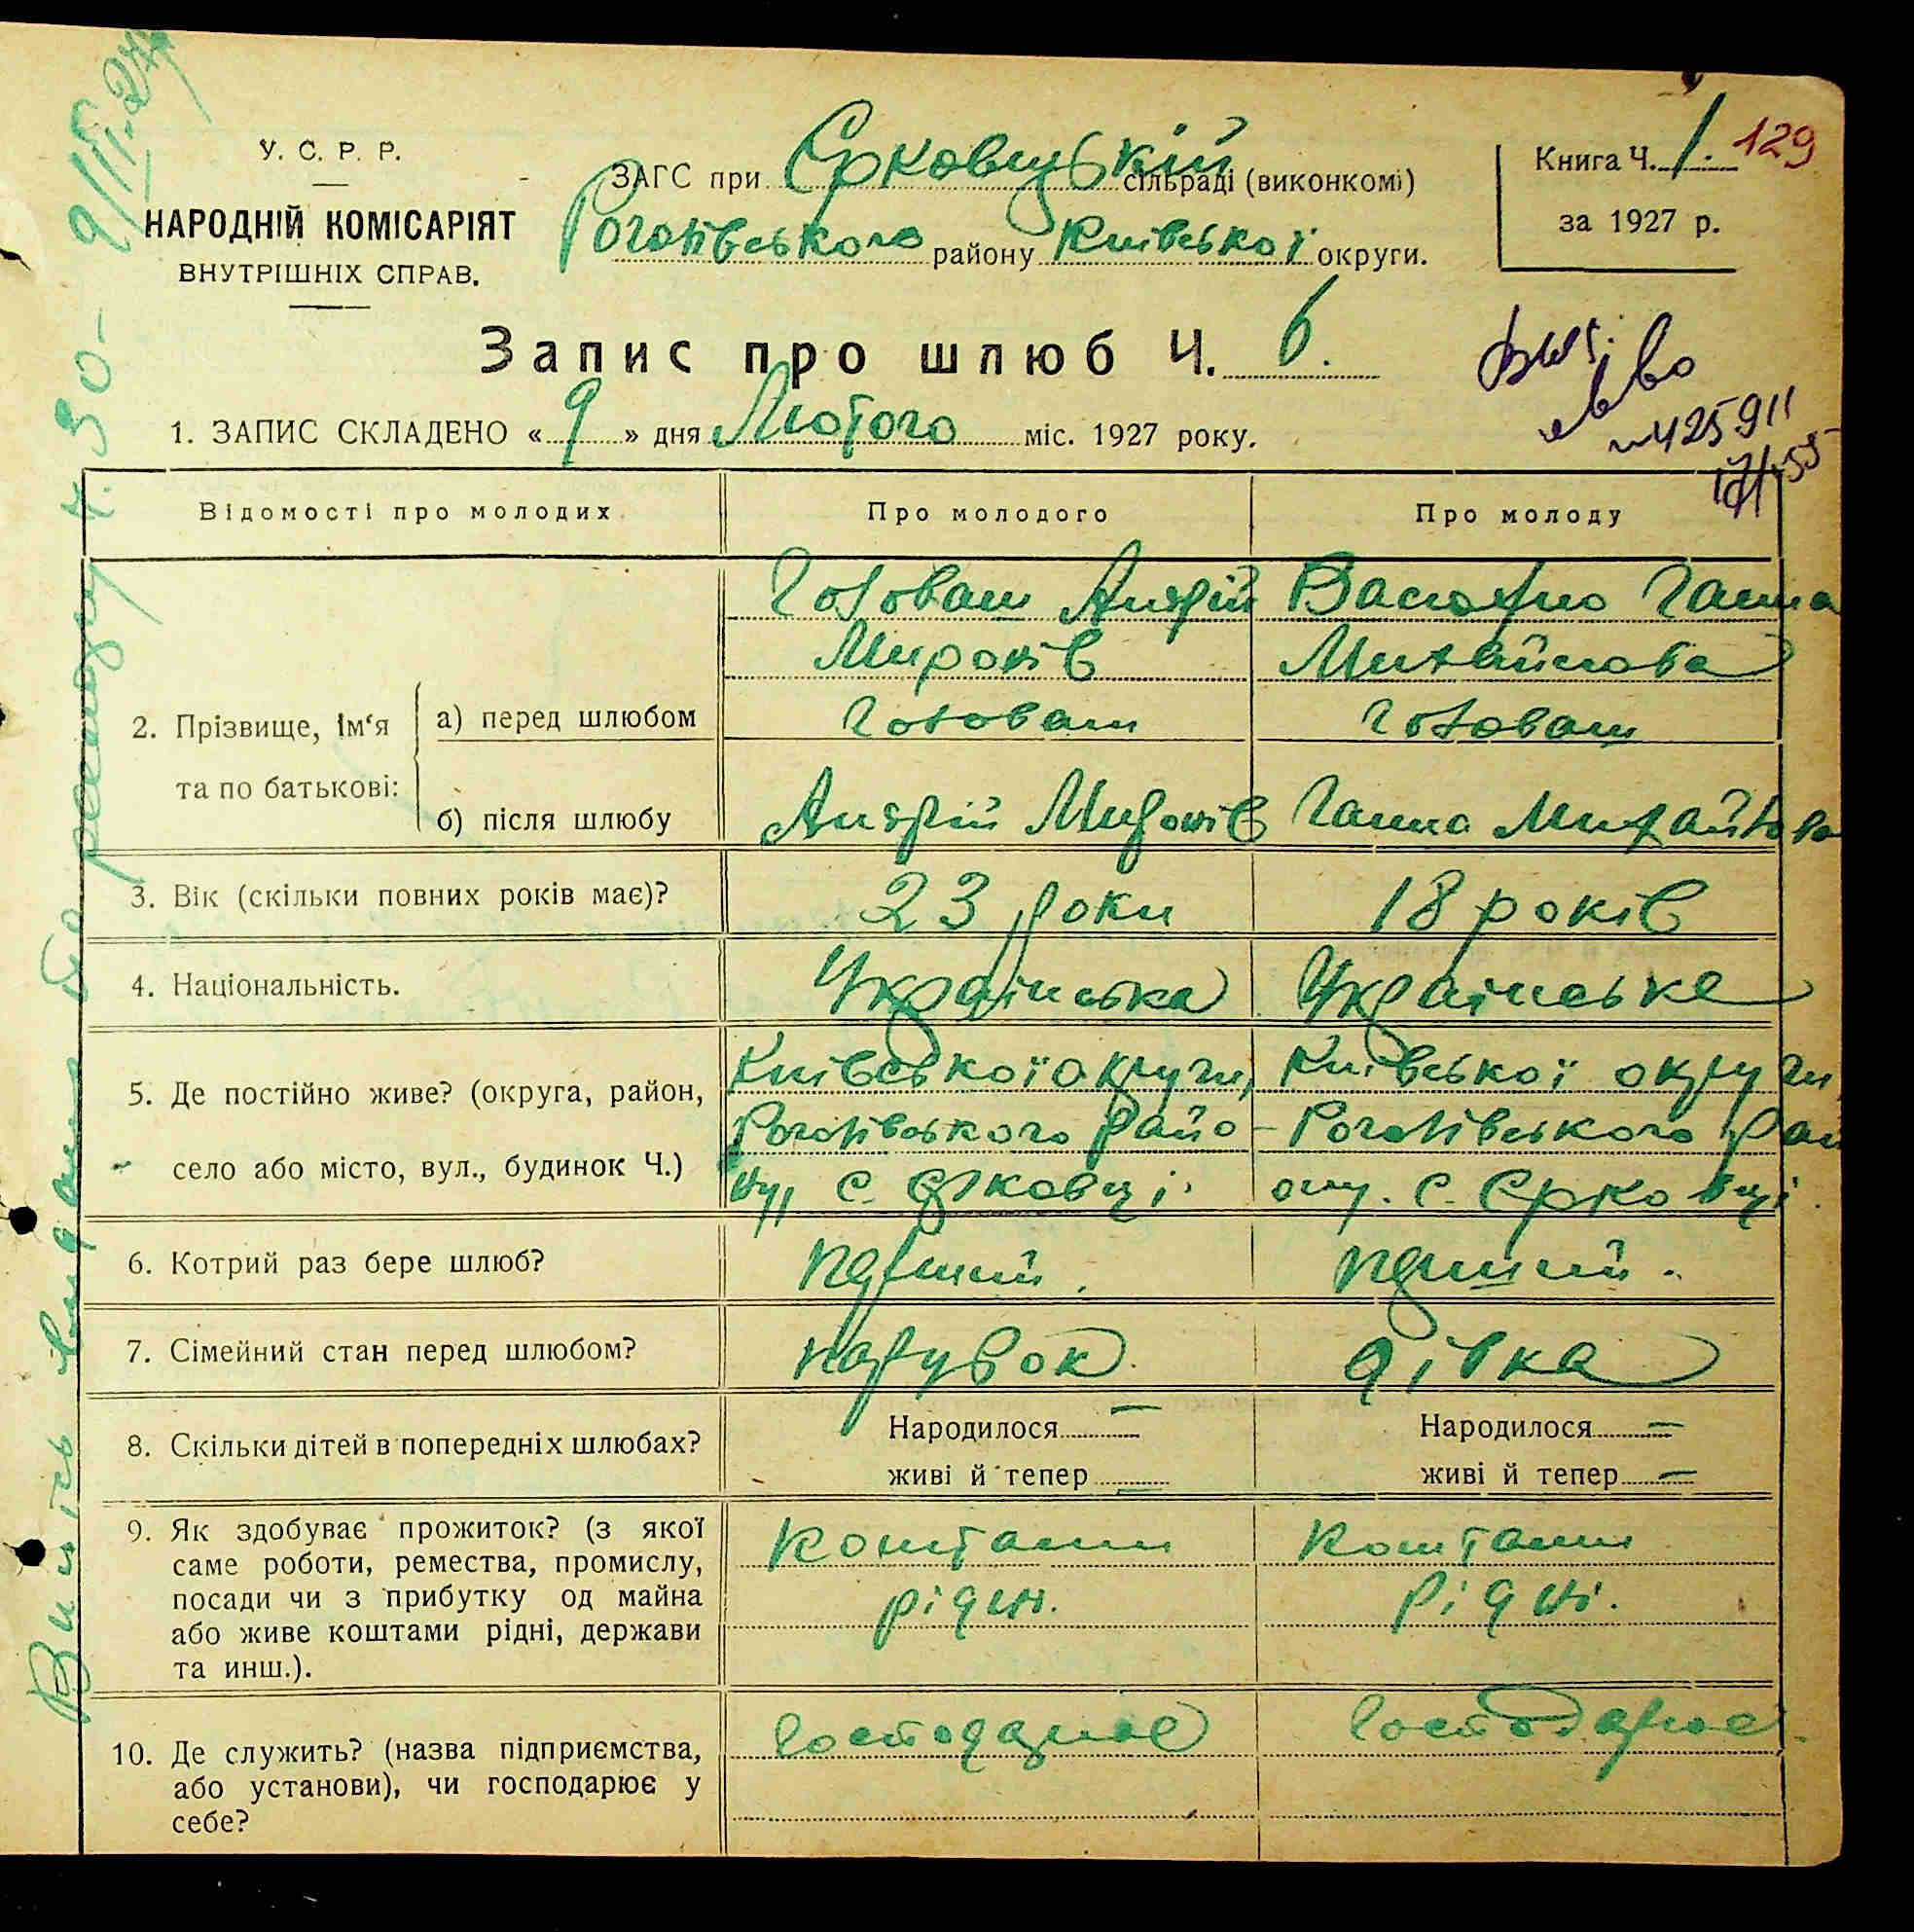 У. С. Р. Р.
НАРОДНІЙ КОМІСАРІЯТ
ВНУТРІШНІХ СПРАВ.
ЗАГС при Єрковецькій сільраді (виконкомі)
Рогозівського району Київської округи.
Книга Ч. 1. 129
за 1927 р.
Запис про шлюб Ч. 6.
1. ЗАПИС СКЛАДЕНО « 9 » дня Лютого міс. 1927 року.
№ 425911
Відомості про молодих Про молодого Про молоду
2. Прізвище, Ім‘я та по батькові:
а) перед шлюбом
Андрій
Миронів
Ганна
Михайлова
б) після шлюбу
Андрій Миронів Ганна Михайлова
3. Вік (скільки повних років має)? 23 роки 18 років
4. Національність. Українська Українська
5. Де постійно живе? (округа, район,
село або місто, вул., будинок Ч.)
Київської округи,
Рогозівського райо-
ну, с. Єрковці.
Київської округи
Рогозівського рай
ону. с. Єрковці.
6. Котрий раз бере шлюб? перший. перший.
7. Сімейний стан перед шлюбом? парубок. дівка
8. Скільки дітей в попередніх шлюбах?
Народилося — Народилося —
живі й тепер — живі й тепер —
9. Як здобуває прожиток? (з якої
саме роботи, ремества, промислу,
посади чи з прибутку од майна
або живе коштами рідні, держави
та инш.).
коштами
рідні.
коштами
рідні.
10. Де служить? (назва підприємства,
або установи), чи господарює у
себе?
Господарює Господарює.
Витяг видано